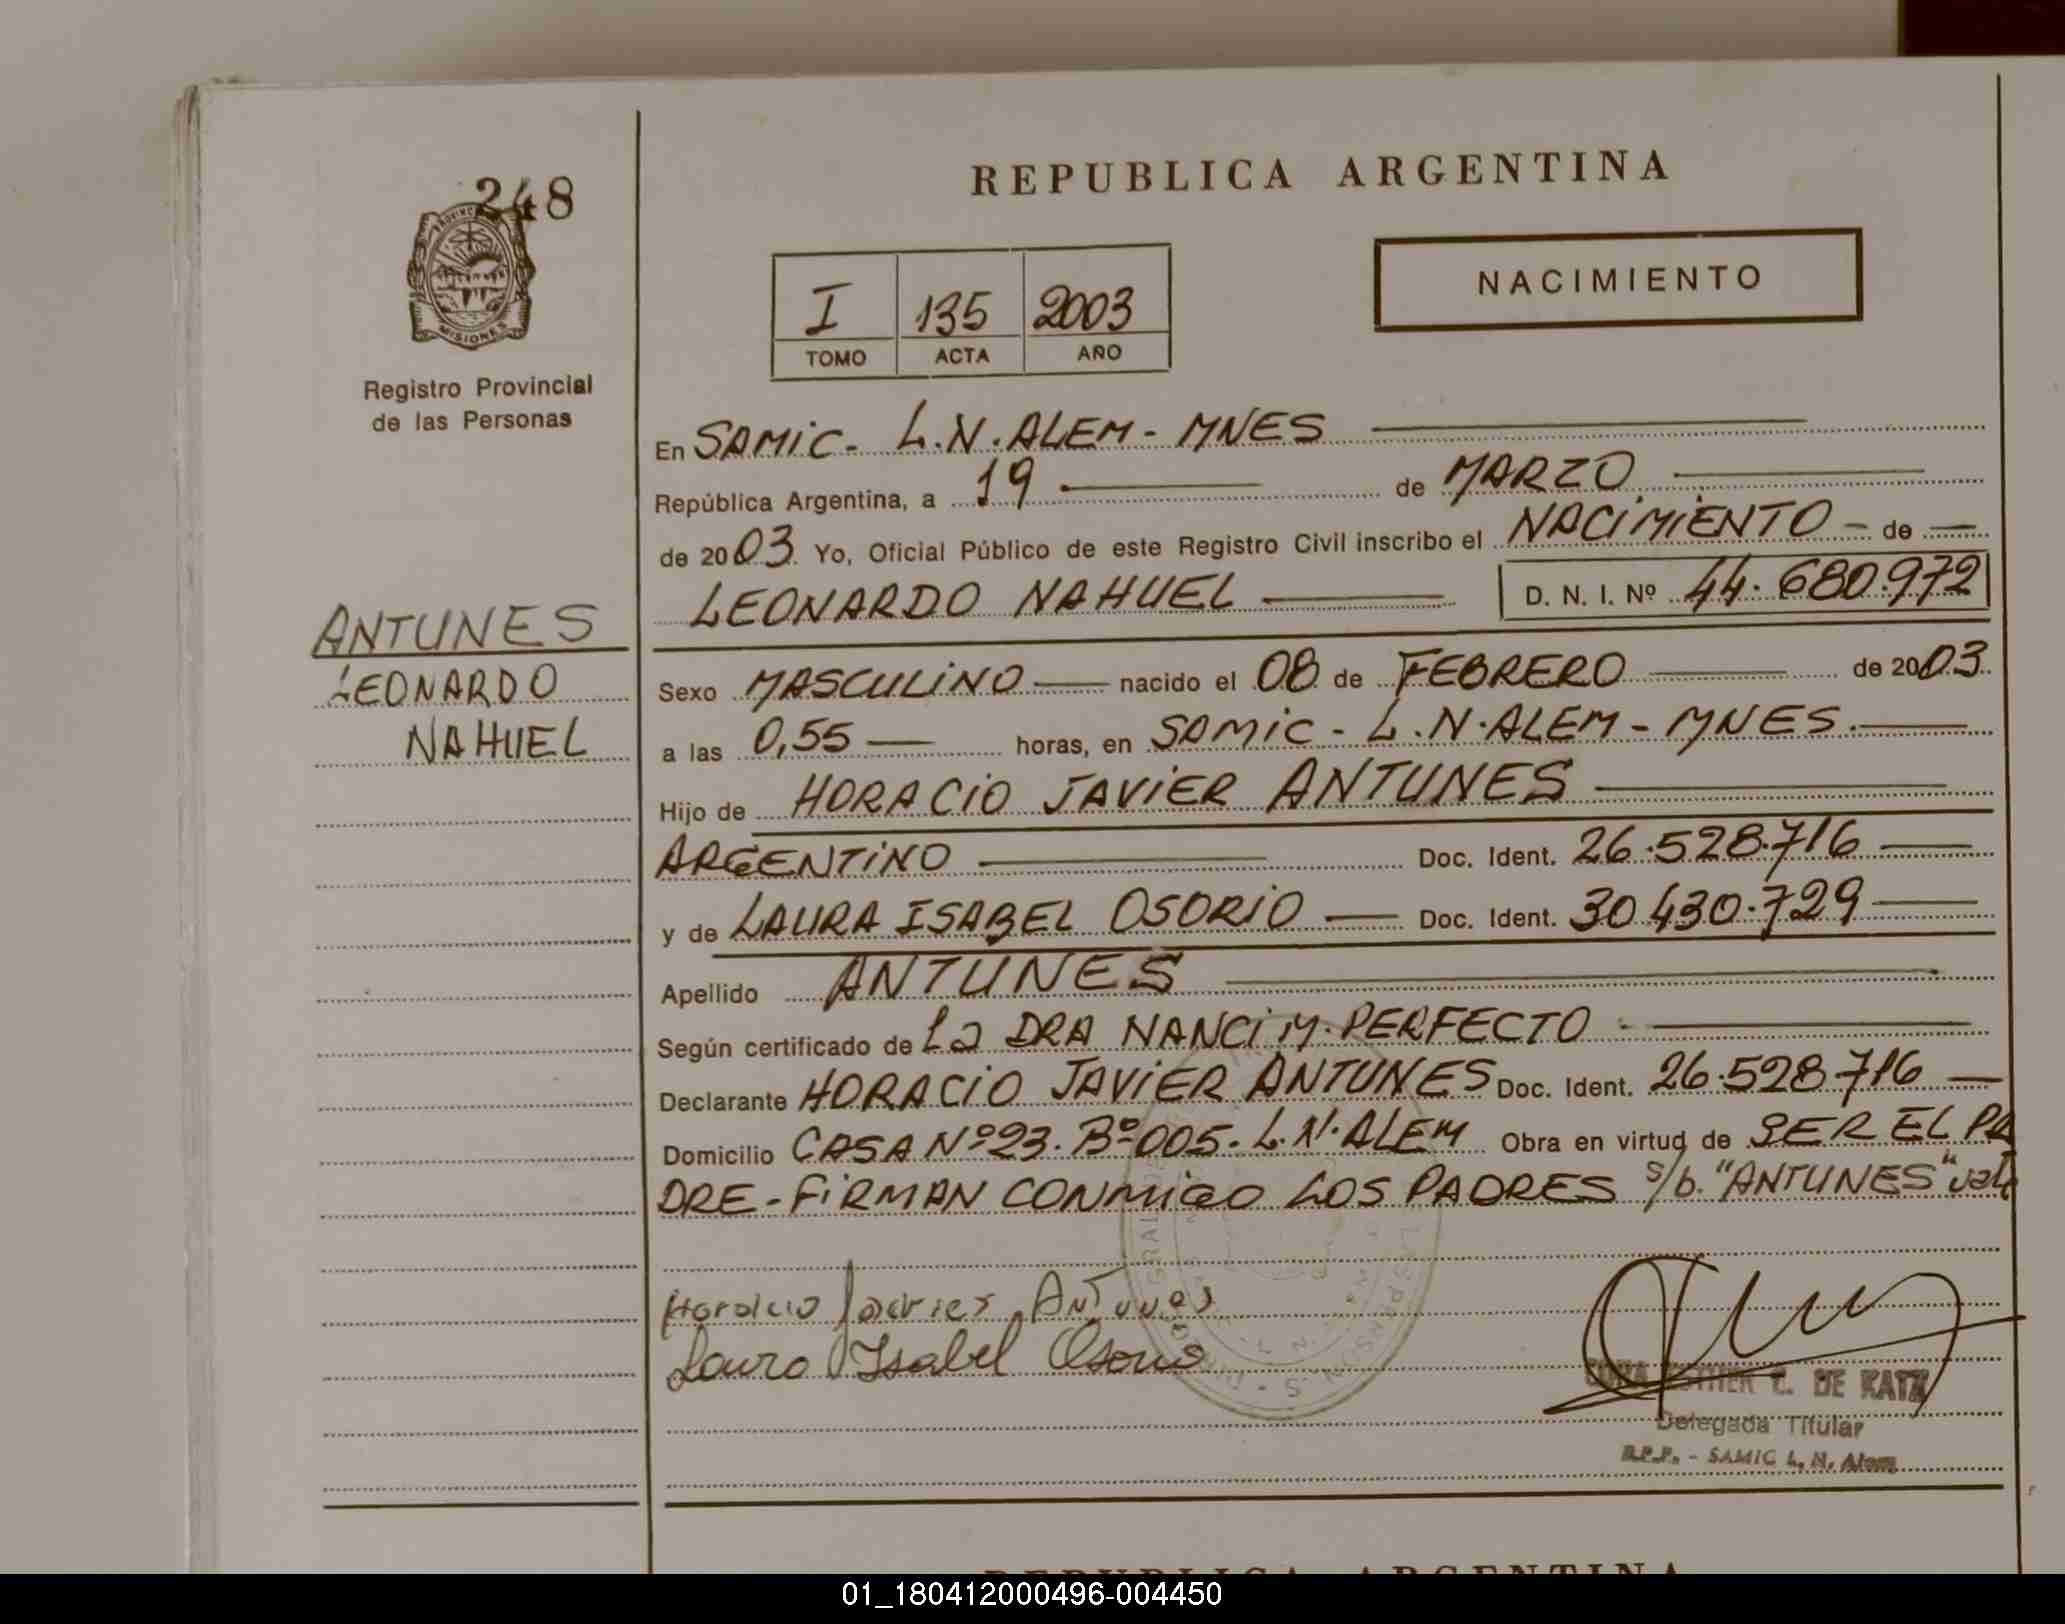 248
PROVINCIA
MISIONES
Registro Provincial
de las Personas
ANTUNES
LEONARDO
NAHUEL
REPUBLICA ARGENTINA
I 135 2003
TOMO ACTA AÑO
NACIMIENTO
En SAMIC- L.N.ALEM- MNES
República Argentina, a 19 de MARZO
de 2003 Yo, Oficial Público de este Registro Civil inscribo el NACIMIENTO de
LEONARDO NAHUEL D. N. I. Nº 44.680.972
Sexo MASCULINO nacido el 08 de FEBRERO de 2003
a las 0,55 horas, en SAMIC - L.N.ALEM - MNES.
Hijo de HORACIO JAVIER ANTUNES
ARGENTINO Doc. Ident. 26.528.716
y de LAURA ISABEL OSORIO Doc. Ident. 30.430.729
Apellido ANTUNES
Según certificado de La DRA NANCI M. PERFECTO
Declarante HORACIO JAVIER ANTUNES Doc. Ident. 26.528.716
Domicilio CASA Nº23. Bº005. L.N.ALEM Obra en virtud de SER EL PA
DRE - FIRMAN CONMIGO LOS PADRES s/b. "ANTUNES" vale
Horacio Javier Antunes
Laura Isabel Osorio
ESTHER C. DE KATZ
Delegada Titular
R.P.P. - SAMIC L. N. Alem
REPUBLICA ARGENTINA
01_180412000496-004450